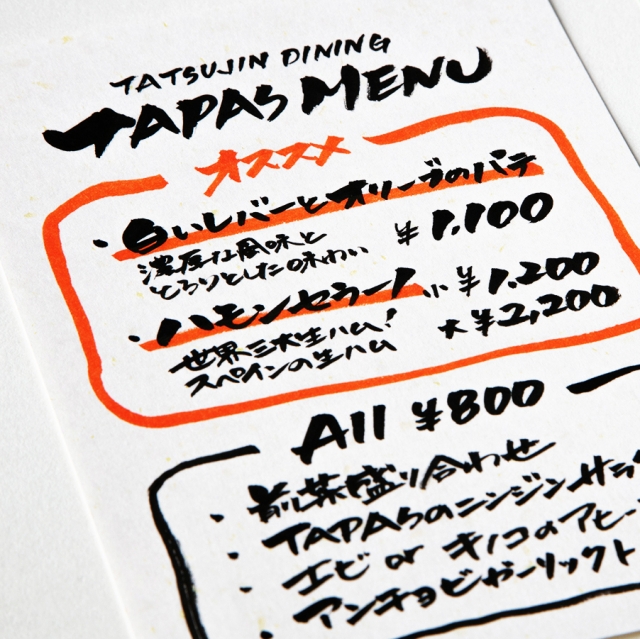 TATSUJIN DINING
TAPAS MENU
オススメ
・白いレバーとオリーブのパテ
濃厚な風味と
とろりとした味わい
¥1.100
・ハモンセラーノ
小 ¥1.200
世界三大生ハム!
スペインの生ハム
大 ¥2,200
All ¥800
・前菜盛り合わせ
・TAPASのニンジンサラ
・エビ or キノコのアヒー
・アンチョビガーリックト